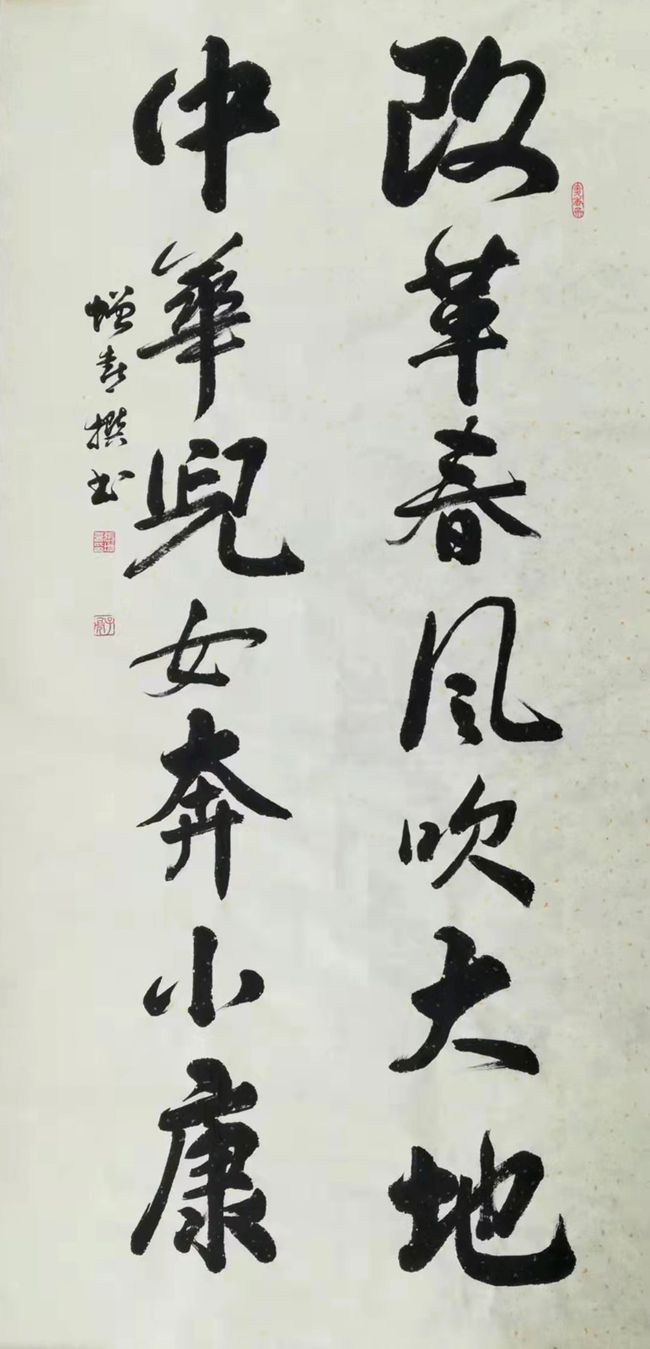 改革春风吹大地
中華兒女奔小康
增喜撰书